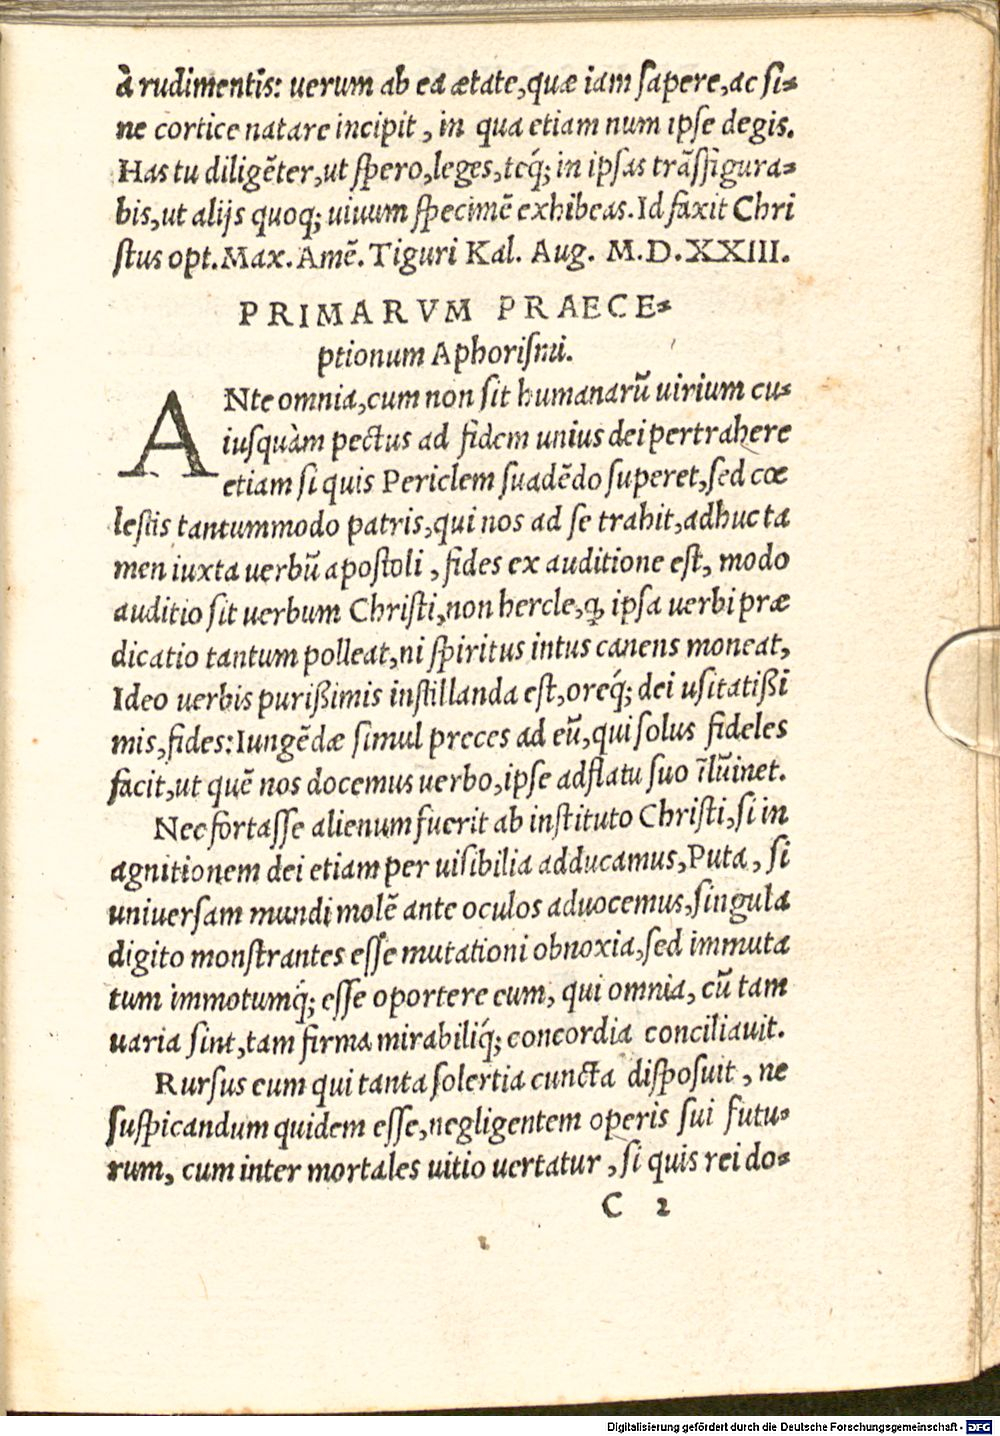 à rudimentis: uerum ab ea ætate,quæ iam sapere,ac si-
ne cortice natare incipit, in qua etiam num ipse degis.
Has tu diligẽter,ut spero,leges,teq́; in ipsas trãsfigura-
bis,ut alijs quoq; uiuum specimẽ exhibeas. Id faxit Chri
stus opt.Max.Amẽ.Tiguri Kal. Aug. M.D.XXIII.
PRIMARVM PRAECE-
ptionum Aphorismi.
ANte omnia,cum non sit humanarũ uirium cu-
iusquàm pectus ad fidem unius dei pertrahere
etiam si quis Periclem suadẽdo superet,sed cœ
lestis tantummodo patris,qui nos ad se trahit,adhuc ta
men iuxta uerbũ apostoli, fides ex auditione est, modo
auditio sit uerbum Christi,non hercle,ꝙ ipsa uerbi præ
dicatio tantum polleat,ni spiritus intus canens moneat,
Ideo uerbis purißimis instillanda est,oreq́; dei usitatißi
mis,fides:Iungẽdæ simul preces ad eũ,qui solus fideles
facit,ut quẽ nos docemus uerbo,ipse adflatu suo ĩlũinet.
Nec fortasse alienum fuerit ab instituto Christi,si in
agnitionem dei etiam per uisibilia adducamus,Puta, si
uniuersam mundi molẽ ante oculos aduocemus,singula
digito monstrantes esse mutationi obnoxia,sed immuta
tum immotumq́; esse oportere eum, qui omnia, cũ tam
uaria sint,tam firma mirabiliq́; concordia conciliauit.
Rursus eum qui tanta solertia cuncta disposuit, ne
suspicandum quidem esse,negligentem operis sui futu-
rum, cum inter mortales uitio uertatur, si quis rei do-
C 2
Digitalisierung gefördert durch die Deutsche Forschungsgemeinschaft - DFG